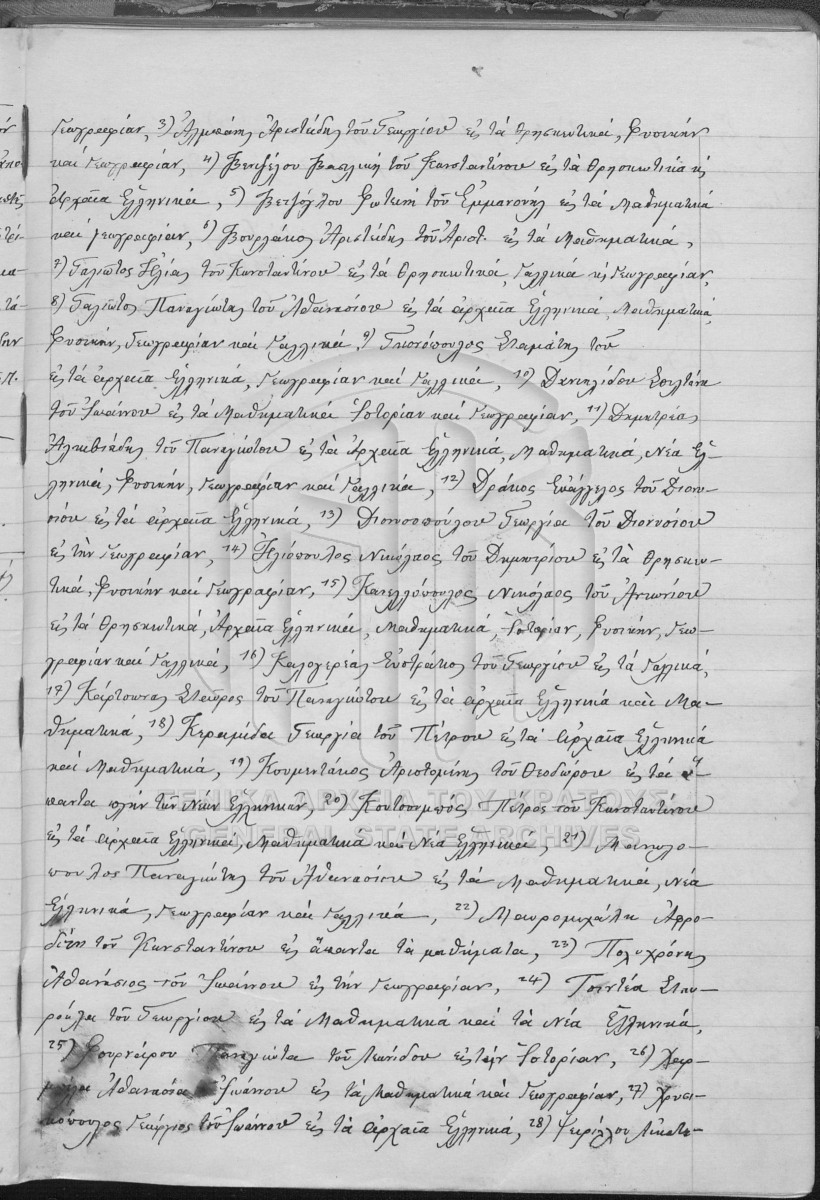 Γεωγραφίαν, 3) Ἀλμπάνης Ἀριστείδης τοῦ Γεωργίου εἰς τά Θρησκευτικά, Φυσικήν
καί Γεωγραφίαν, 4) Βεντζίου Βασιλική τοῦ Κωνσταντίνου εἰς τά Θρησκευτικά κ
ἀρχαῖα Ἑλληνικά, 5) Φωτεινή τοῦ Ἐμμανουήλ εἰς τά Μαθηματικά
καί γεωγραφίαν, 6) Βουρλάκος Ἀριστείδης τοῦ Ἀριστ. εἰς τά Μαθηματικά,
7) Γαλιῶτος Ἠλίας τοῦ Κωνσταντίνου εἰς τά Θρησκευτικά, Γαλλικά κ Γεωγραφίαν,
8) Γαλιῶτος Παναγιώτης τοῦ Ἀθανασίου εἰς τά ἀρχαῖα Ἑλληνικά, Μαθηματικά,
Φυσικήν, Γεωγραφίαν καί Γαλλικά, 9) Σταμάτης τοῦ
εἰς τά ἀρχαῖα Ἑλληνικά, Γεωγραφίαν καί Γαλλικά, 10) Δανιηλίδου Σουλτάνα
τοῦ Ἰωάννου εἰς τά Μαθηματικά Ἱστορίαν καί Γεωγραφίαν, 11) Δημητρέας
Ἀλκιβιάδης τοῦ Παναγιώτου εἰς τά Ἀρχαῖα Ἑλληνικά, Μαθηματικά, Νέα Ἑλ-
ληνικά, Φυσικήν, Γεωγραφίαν καί Γαλλικά, 12) Δράκος Εὐάγγελος τοῦ Διονυ-
σίου εἰς τά ἀρχαῖα Ἑλληνικά, 13) Διονυσοπούλου Γεωργία τοῦ Διονυσίου
εἰς τήν Γεωγραφίαν, 14) Ἠλιόπουλος Νικόλαος τοῦ Δημητρίου εἰς τά Θρησκευ-
τικά, Φυσικήν καί Γεωγραφίαν, 15) Κανελλόπουλος Νικόλαος τοῦ Ἀντωνίου
εἰς τά Θρησκευτικά, Ἀρχαῖα Ἑλληνικά, Μαθηματικά, Ἱστορίαν, Φυσικήν, Γεω-
γραφίαν καί Γαλλικά, 16) Καλογερέας Εὐστράτιος τοῦ Γεωργίου εἰς τά Γαλλικά,
17) Κάρτσωνας Σταῦρος τοῦ Παναγιώτου εἰς τά ἀρχαῖα Ἑλληνικά καί Μα-
θηματικά, 18) Κεραμίδα Γεωργία τοῦ Πέτρου εἰς τά ἀρχαῖα Ἑλληνικά
καί Μαθηματικά, 19) Κουμεντάκος Ἀριστομένης τοῦ Θεοδώρου εἰς τά ἅ-
παντα πλήν τῶν Νέων Ἑλληνικῶν, 20) Κουτσουμπός Πέτρος τοῦ Κωνσταντίνου
εἰς τά ἀρχαῖα Ἑλληνικά, Μαθηματικά καί Νέα Ἑλληνικά, 21) Μανωλο-
πουλος Παναγιώτης τοῦ Ἀθανασίου εἰς τά Μαθηματικά, Νέα
Ἑλληνικά, Γεωγραφίαν καί Γαλλικά, 22) Μαυρομιχάλη Ἀφρο-
δίτη τοῦ Κωνσταντίνου εἰς ἅπαντα τά μαθήματα, 23) Πολυχρόνης
Ἀθανάσιος τοῦ Ἰωάννου εἰς τήν Γεωγραφίαν, 24) Σταυ-
ρούλα τοῦ Γεωργίου εἰς τά Μαθηματικά καί τά Νέα Ἑλληνικά,
25) Φουρνάρου Παναγιώτα τοῦ Λεωνίδου εἰς τήν Ἱστορίαν, 26)
Ἀθανασία Ἰωάννου εἰς τά Μαθηματικά καί Γεωγραφίαν, 27) Χρυσι-
κόπουλος Γεώργιος τοῦ Ἰωάννου εἰς τά ἀρχαῖα Ἑλληνικά, 28)
ΓΕΝΙΚΑ ΑΡΧΕΙΑ ΤΟΥ ΚΡΑΤΟΥΣ
GENERAL STATE ARCHIVES